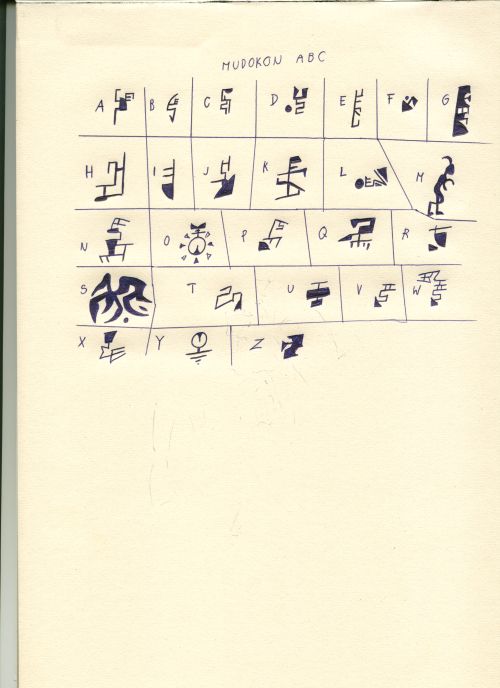 MUDOKON ABC
A B C D E F G
H I J K L M
N O P Q R
S T U V W
X Y Z